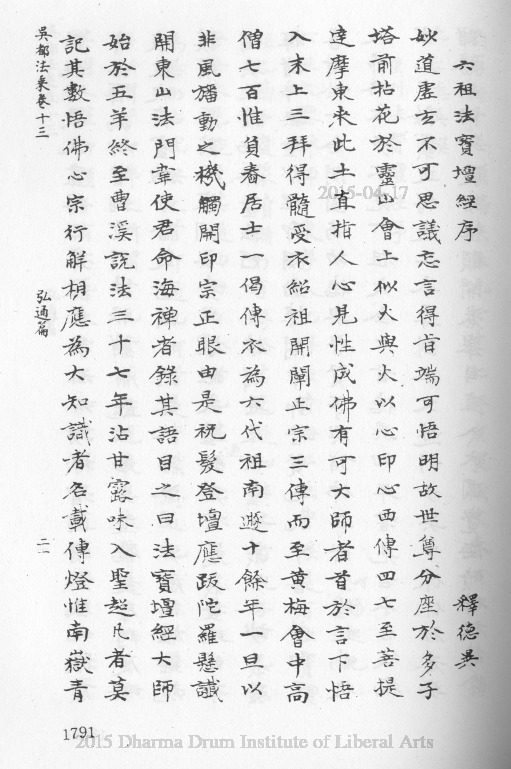 六祖法寶壇經序
釋德異
妙道虛玄不可思議忘言得旨端可悟明故世尊分座於多子
塔前拈花於靈山會上似火與火以心印心西傳四七至菩提
達摩東來此土直指人心見性成佛有可大師者首於言下悟
入末上三拜得髓受衣紹祖開闡正宗三傳而至黃梅會中高
僧七百惟負舂居士一偈傳衣為六代祖南遯十餘年一旦以
非風旛動之機觸開印宗正眼由是祝髮登壇應跋陀羅懸讖
開東山法門韋使君命海禪者錄其語目之曰法寶壇經大師
始於五羊終至曹溪說法三十七年沾甘露味入聖超凡者莫
記其數悟佛心宗行解相應為大知識者名載傳燈惟南嶽青
吳都法乘卷十三
弘通篇
二一
1791
2015-04-17
2015 Dharma Drum Institute of Liberal Arts